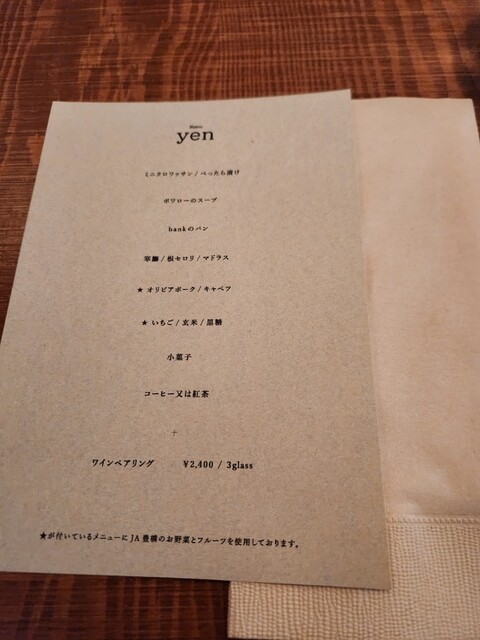 yen
ミニクロワッサン / べったら漬け
ポワローのスープ
bankのパン
寒鰤 / 根セロリ / マドラス
★ オリビアポーク / キャベツ
★ いちご / 玄米 / 黒糖
小菓子
コーヒー又は紅茶
+
ワインペアリング ¥2,400 / 3glass
★が付いているメニューにJA豊橋のお野菜とフルーツを使用しております。